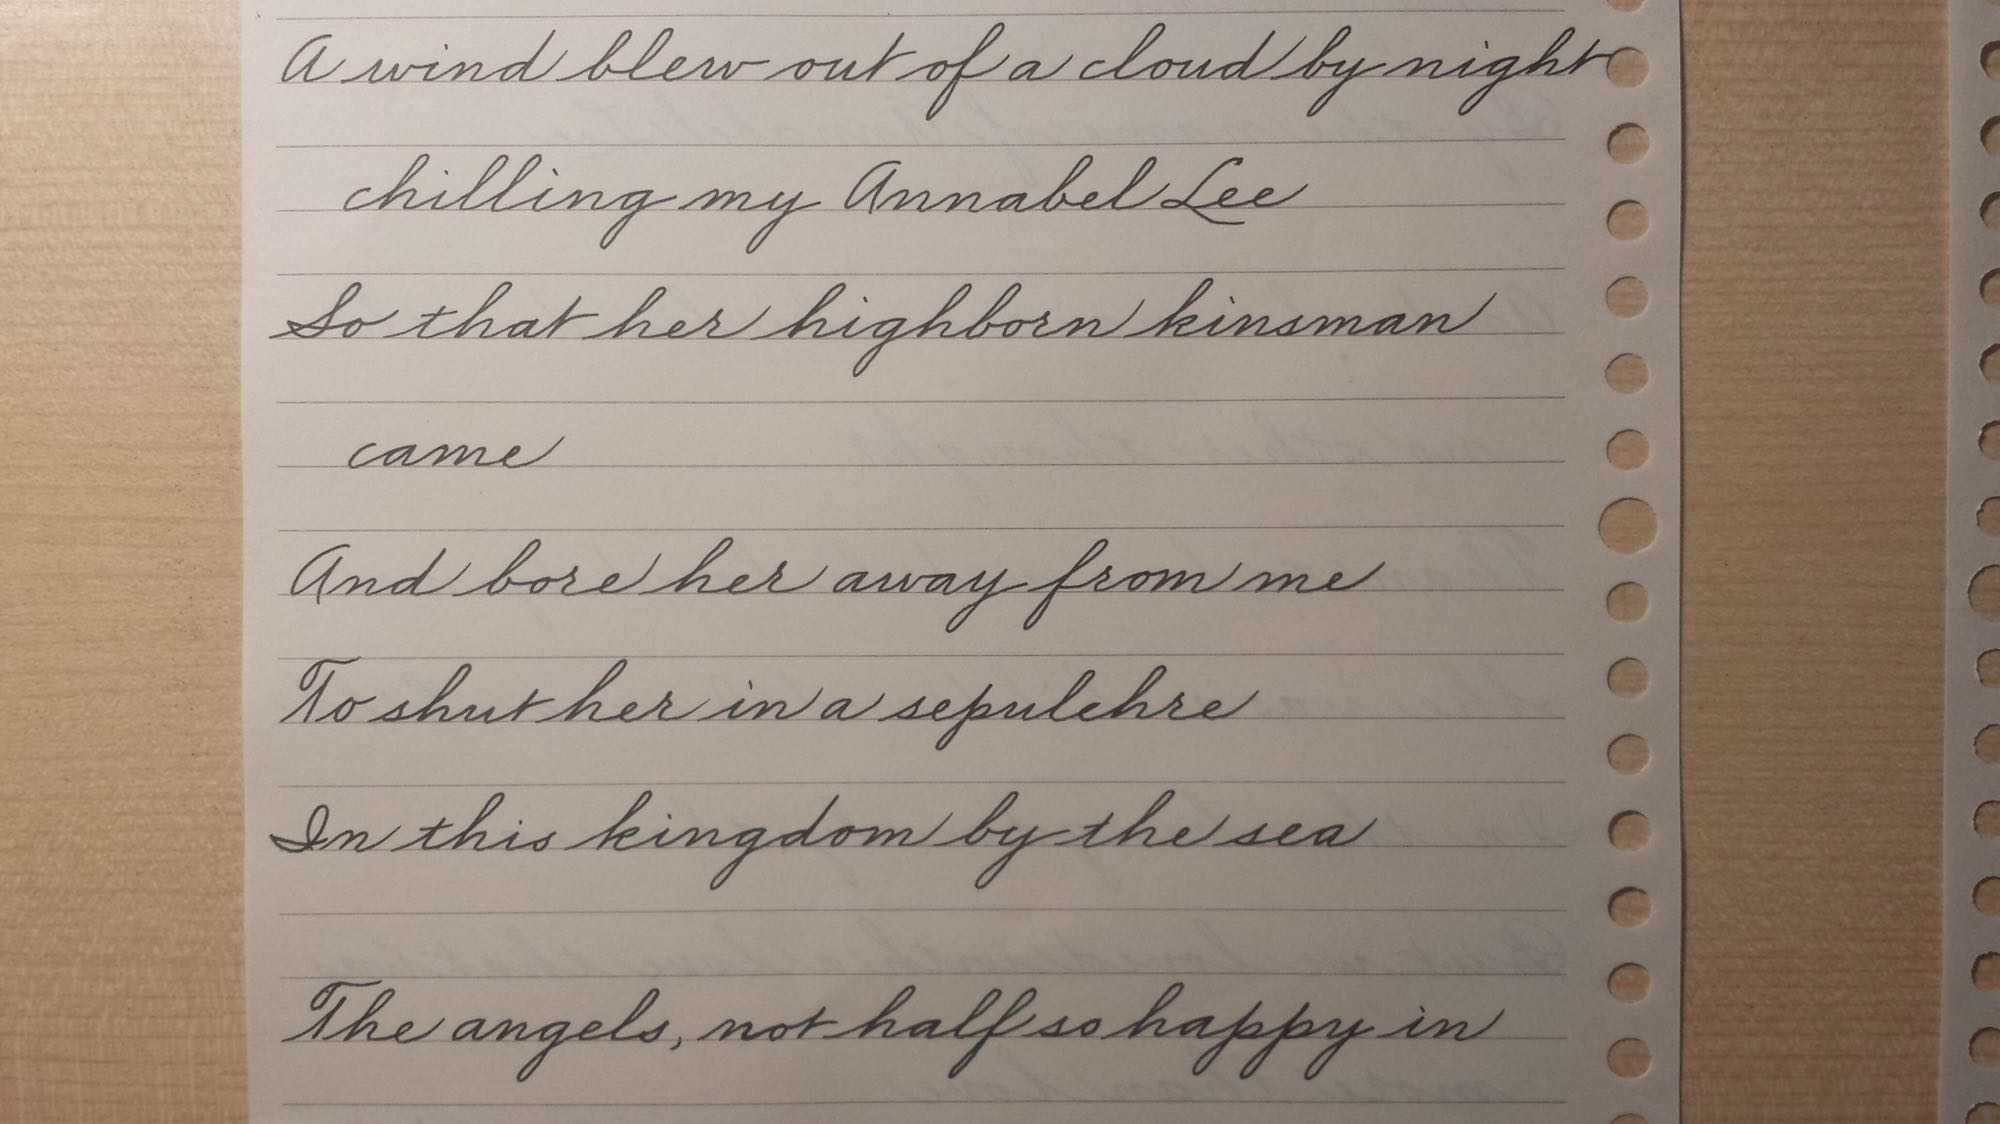 A wind blew out of a cloud by night
chilling my Annabel Lee
So that her highborn kinsman
came
And bore her away from me
To shut her in a sepulchre
In this kingdom by the sea
The angels, not half so happy in